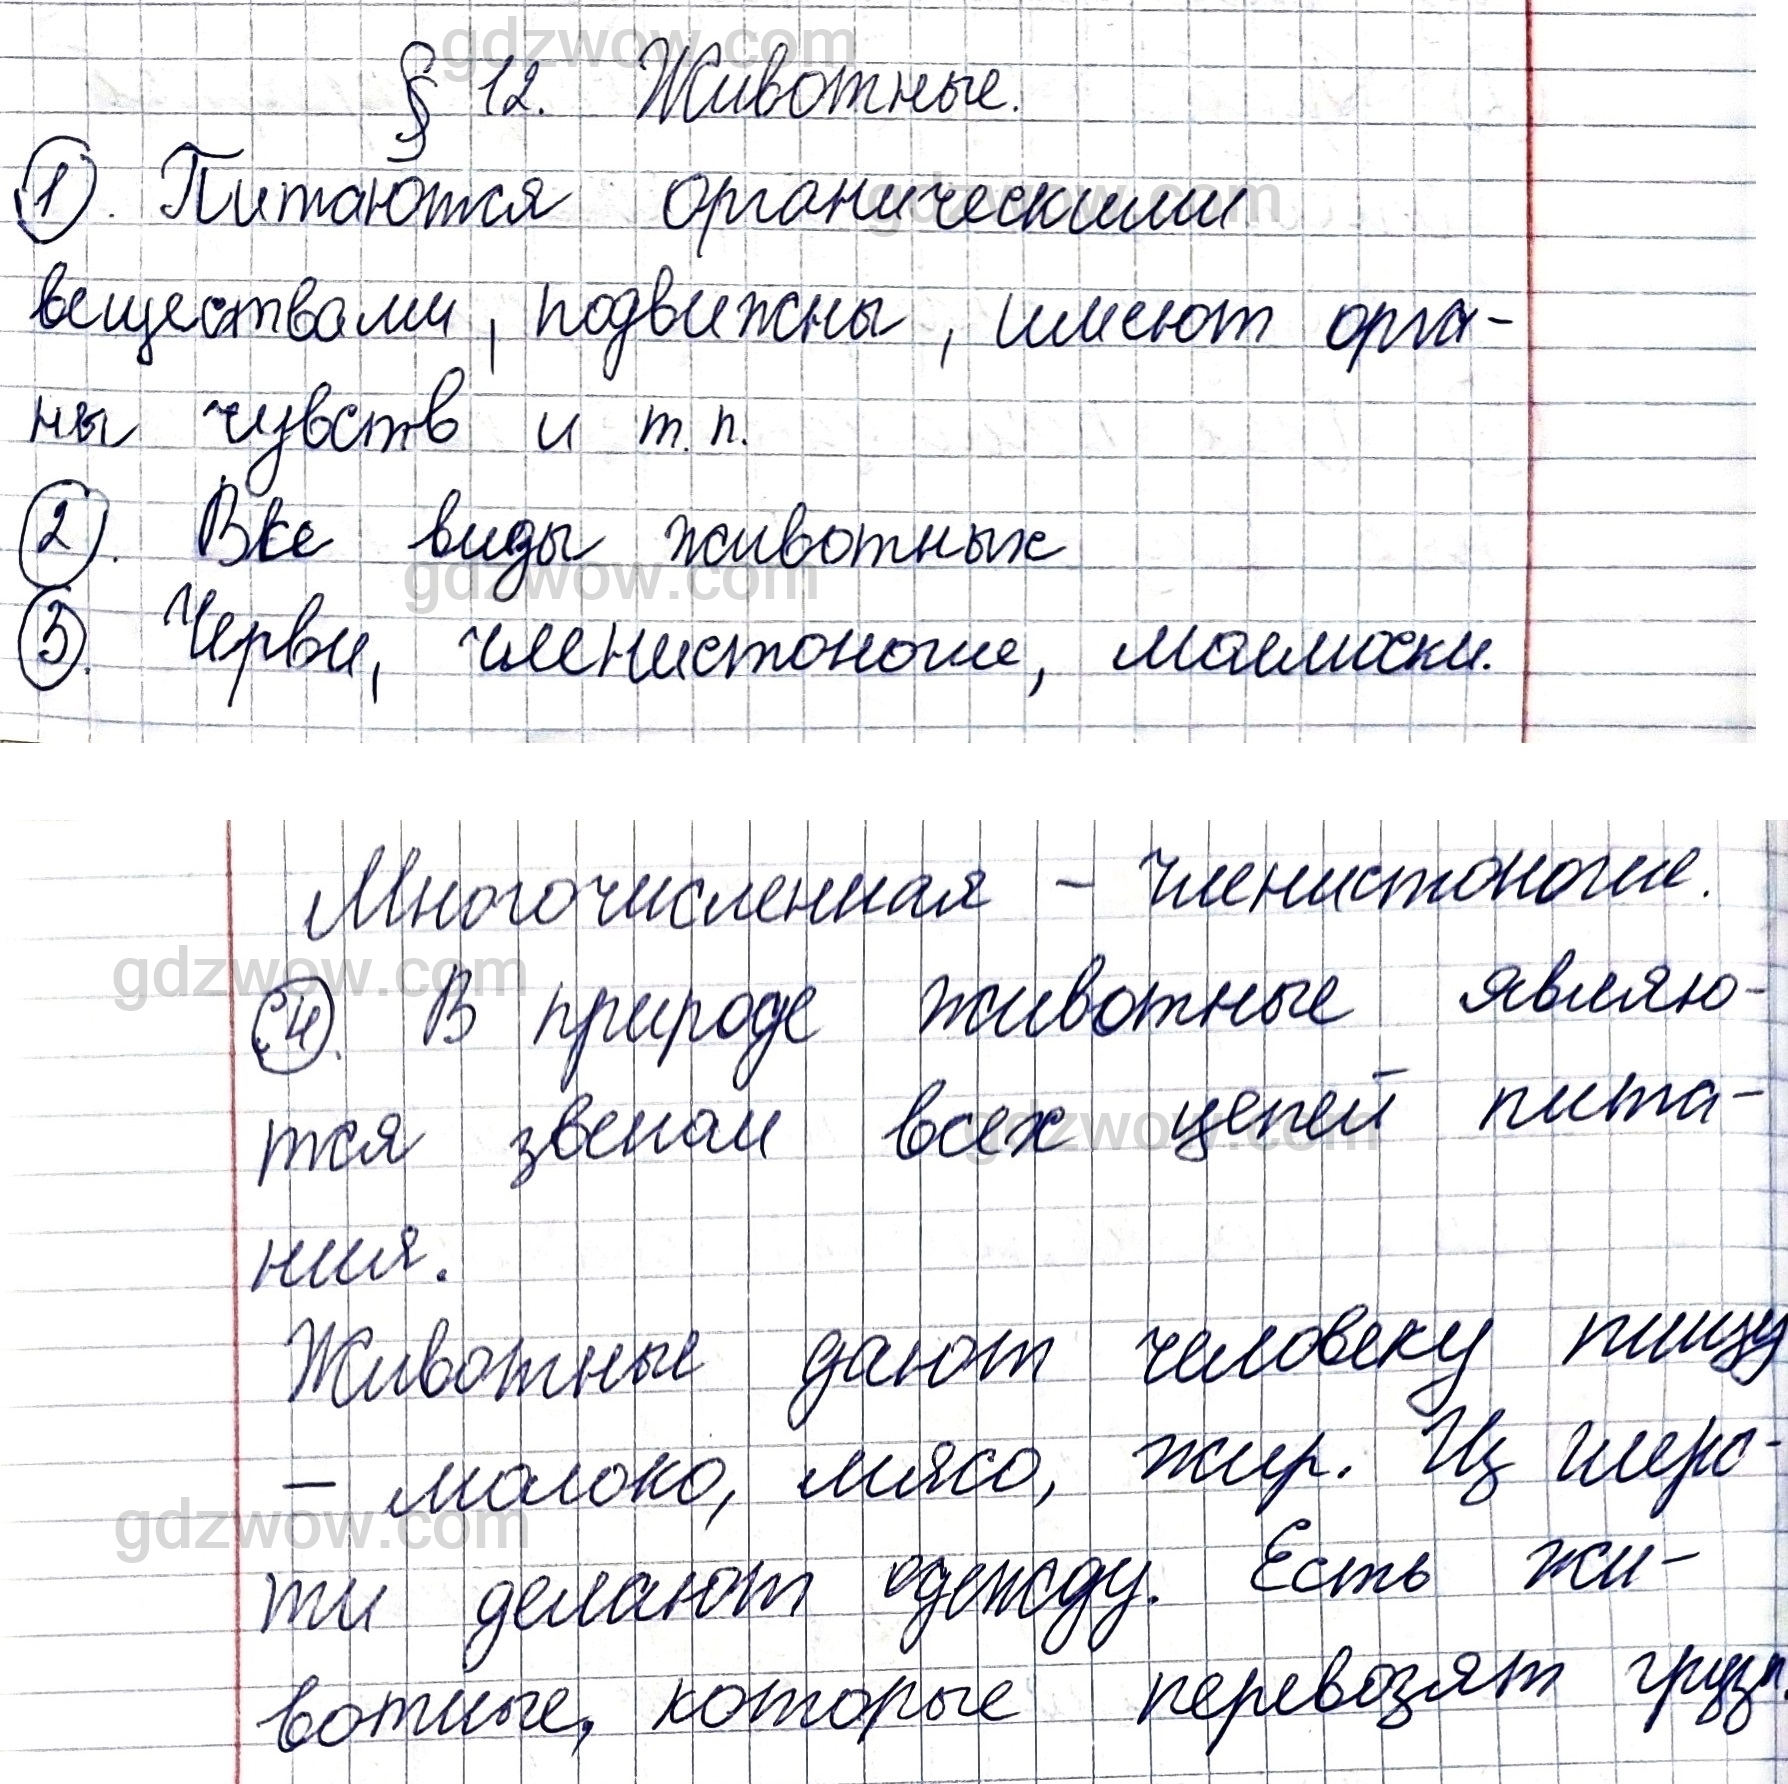 § 12. Животные.
1. Питаются органическими
веществами, подвижны, имеют орга-
ны чувств и т.п.
2. Все виды животных
3. Черви, членистоногие, моллюски.
Многочисленная - членистоногие.
4. В природе животные являю-
тся звеном всех цепей пита-
ния.
Животные дают человеку пищу
- молоко, мясо, жир. Из шерс-
ти делают одежду. Есть жи-
вотные, которые перевозят грузы.
gdzwow.com
gdzwow.com
gdzwow.com
gdzwow.com
gdzwow.com
gdzwow.com